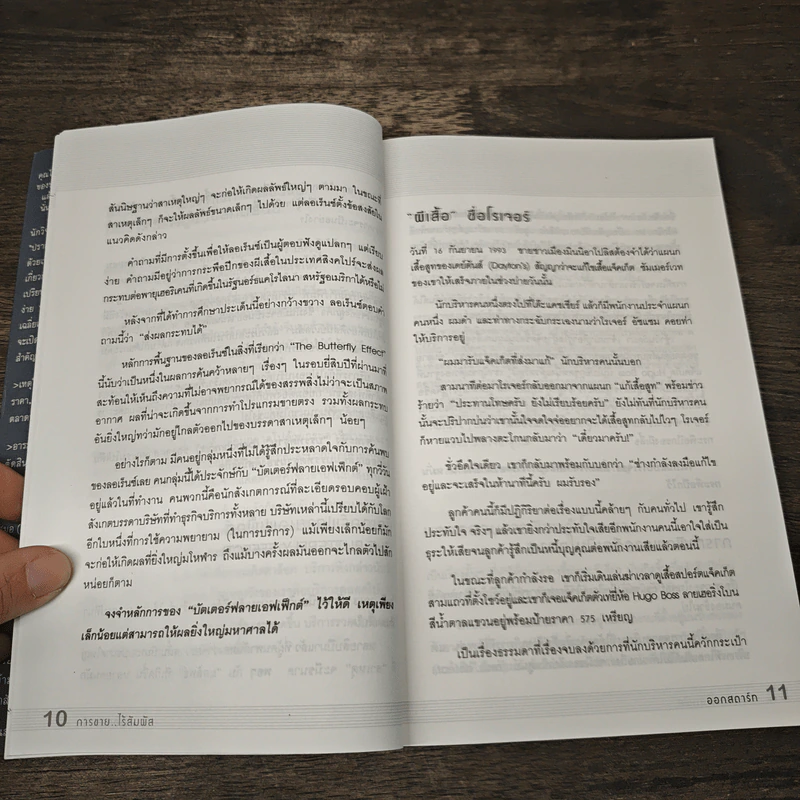 สันนิษฐานว่าสาเหตุใหญ่ๆ จะก่อให้เกิดผลลัพธ์ใหญ่ๆ ตามมา ในขณะที่
สาเหตุเล็กๆ ก็จะให้ผลลัพธ์ขนาดเล็กๆ ไปด้วย แต่ลอเรินซ์ตั้งข้อสงสัยใน
แนวคิดดังกล่าว
คำถามที่มีการตั้งขึ้นเพื่อให้ลอเรินซ์เป็นผู้ตอบฟังดูแปลกๆ แต่เรียบ
ง่าย คำถามมีอยู่ว่าการกระพือปีกของผีเสื้อในประเทศสิงคโปร์จะส่งผล
กระทบต่อพายุเฮอริเคนที่เกิดขึ้นในรัฐนอร์ธแคโรไลนา สหรัฐอเมริกาได้หรือไม่
หลังจากที่ได้ทำการศึกษาประเด็นนี้อย่างกว้างขวาง ลอเรินซ์ตอบคำ
ถามนี้ว่า "ส่งผลกระทบได้"
หลักการพื้นฐานของลอเรินซ์ในสิ่งที่เรียกว่า "The Butterfly Effect"
นี้นับว่าเป็นหนึ่งในผลการค้นคว้าหลายๆ เรื่องๆ ในรอบยี่สิบปีที่ผ่านมาที่
สะท้อนให้เห็นถึงความที่ไม่อาจพยากรณ์ได้ของสรรพสิ่งไม่ว่าจะเป็นสภาพ
อากาศ ผลที่น่าจะเกิดขึ้นจากการทำโปรแกรมขายตรง รวมทั้งผลกระทบ
อันยิ่งใหญ่ทว่ามักอยู่ไกลตัวออกไปของบรรดาสาเหตุเล็กๆ น้อยๆ
อย่างไรก็ตาม มีคนอยู่กลุ่มหนึ่งที่ไม่ได้รู้สึกประหลาดใจกับการค้นพบ
ของลอเรินซ์เลย คนกลุ่มนี้ได้ประจักษ์กับ "บัตเตอร์ฟลายเอฟเฟ็กต์" ทุกวี่วัน
อยู่แล้วในที่ทำงาน คนพวกนี้คือนักสังเกตการณ์ที่ละเอียดรอบคอบผู้เฝ้า
สังเกตบรรดาบริษัทที่ทำธุรกิจบริการทั้งหลาย บริษัทเหล่านี้เปรียบได้กับโลก
อีกใบหนึ่งที่การใช้ความพยายาม (ในการบริการ) แม้เพียงเล็กน้อยก็มัก
จะก่อให้เกิดผลที่ยิ่งใหญ่มโหฬาร ถึงแม้บางครั้งผลมันออกจะไกลตัวไปสัก
หน่อยก็ตาม
จงจำหลักการของ "บัตเตอร์ฟลายเอฟเฟ็กต์" ไว้ให้ดี เหตุเพียง
เล็กน้อยแต่สามารถให้ผลยิ่งใหญ่มหาศาลได้
10 การขาย..ไร้สัมผัส
"ผีเสื้อ" ชื่อโรเจอร์
วันที่ 16 กันยายน 1993 ชายชาวเมืองมินนีอาโปลิสต้องจำได้ว่าแผนก
เสื้อสูทของเดย์ตันส์ (Dayton's) สัญญาว่าจะแก้ไขเสื้อแจ็คเก็ต ซัมเมอร์เวท
ของเขาให้เสร็จภายในช่วงบ่ายวันนั้น
นักบริหารคนหนึ่งตรงไปที่โต๊ะแคชเชียร์ แล้วก็มีพนักงานประจำแผนก
คนหนึ่ง ผมดำ และท่าทางกระฉับกระเฉงนามว่าโรเจอร์ อัซแซม คอยทำ
ให้บริการอยู่
"ผมมารับแจ็คเก็ตที่ส่งมาแก้" นักบริหารคนนั้นบอก
สามนาทีต่อมาโรเจอร์กลับออกมาจากแผนก "แก้เสื้อสูท" พร้อมข่าว
ร้ายว่า "ประทานโทษครับ ยังไม่เรียบร้อยครับ" ยังไม่ทันที่นักบริหารคน
นั้นจะปริปากบ่นว่าเขานั้นใจจดใจจ่ออยากจะได้เสื้อสูทกลับไปไวๆ โรเจอร์
ก็หายแวบไปพลางตะโกนกลับมาว่า "เดี๋ยวมาครับ!"
ชั่วอึดใจเดียว เขาก็กลับมาพร้อมกับบอกว่า "ช่างกำลังลงมือแก้ไข
อยู่และจะเสร็จในห้านาทีนี้ครับ ผมรับรอง"
ลูกค้าคนนี้ก็มีปฏิกิริยาต่อเรื่องแบบนี้คล้ายๆ กับคนทั่วไป เขารู้สึก
ประทับใจ จริงๆ แล้วเขายิ่งกว่าประทับใจเสียอีกพนักงานคนนี้เอาใจใส่เป็น
ธุระให้เสียจนลูกค้ารู้สึกเป็นหนี้บุญคุณต่อพนักงานเสียแล้วตอนนี้
ในขณะที่ลูกค้ากำลังรอ เขาก็เริ่มเดินเล่นฆ่าเวลาดูเสื้อสปอร์ตแจ็คเก็ต
สามแถวที่ตั้งโชว์อยู่และเขาก็เจอแจ็คเก็ตตัวเท่ยี่ห้อ Hugo Boss ลายเฮอริงโบน
สีน้ำตาลแขวนอยู่พร้อมป้ายราคา 575 เหรียญ
เป็นเรื่องธรรมดาที่เรื่องจบลงด้วยการที่นักบริหารคนนี้ควักกระเป๋า
ออกสตาร์ท 11